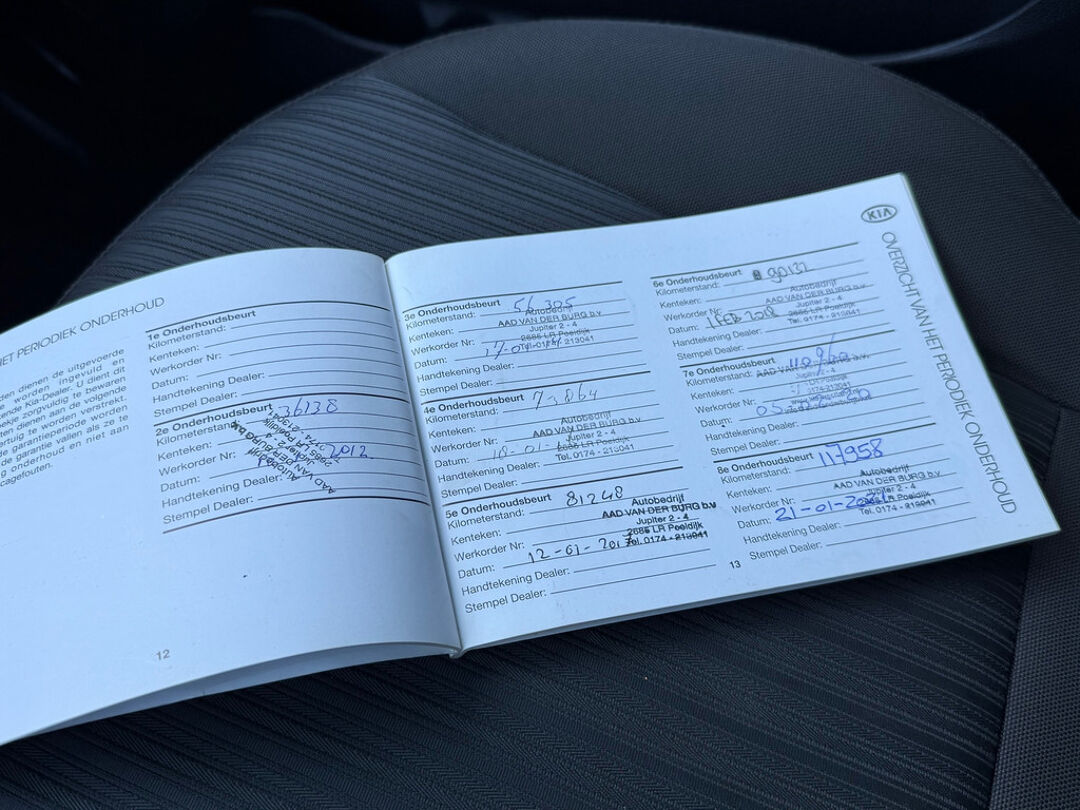 HET PERIODIEK ONDERHOUD
dienen de uitgevoerde
worden ingevuld en
Kia-Dealer. U dient dit
zorgvuldig te bewaren
dienen aan de volgende
te worden verstrekt.
de garantieperiode worden
de garantie vallen als ze te
onderhoud en niet aan
12
1e Onderhoudsbeurt
Kilometerstand:
Kenteken:
Werkorder Nr:
Datum:
Handtekening Dealer:
Stempel Dealer:
2e Onderhoudsbeurt 36138
Kilometerstand:
Kenteken:
Werkorder Nr: 2012
Datum:
Handtekening Dealer:
Stempel Dealer:
Autobedrijf
AAD VAN DER BURG b.v.
Jupiter 2 - 4
3e Onderhoudsbeurt 56.305
Kilometerstand:
Kenteken:
Werkorder Nr:
Datum:
Handtekening Dealer:
Stempel Dealer:
Autobedrijf
AAD VAN DER BURG b.v.
Jupiter 2 - 4
2685 LR Poeldijk
Tel. 0174 - 213041
4e Onderhoudsbeurt 73864
Kilometerstand:
Kenteken:
Werkorder Nr:
Datum:
Handtekening Dealer:
Stempel Dealer:
Autobedrijf
AAD VAN DER BURG b.v.
Jupiter 2 - 4
2685 LR Poeldijk
Tel. 0174 - 213041
5e Onderhoudsbeurt 81248
Kilometerstand:
Kenteken:
Werkorder Nr:
Datum: 12-01-2017
Handtekening Dealer:
Stempel Dealer:
Autobedrijf
AAD VAN DER BURG b.v.
Jupiter 2 - 4
2685 LR Poeldijk
Tel. 0174 - 213041
KIA
OVERZICHT VAN HET PERIODIEK ONDERHOUD
6e Onderhoudsbeurt 90132
Kilometerstand:
Kenteken:
Werkorder Nr:
Datum: 1 FEB 2018
Handtekening Dealer:
Stempel Dealer:
Autobedrijf
AAD VAN DER BURG b.v.
Jupiter 2 - 4
2685 LR Poeldijk
Tel. 0174 - 213041
7e Onderhoudsbeurt
Kilometerstand:
Kenteken:
Werkorder Nr:
Datum:
Handtekening Dealer:
Stempel Dealer:
8e Onderhoudsbeurt 117958
Kilometerstand:
Kenteken:
Werkorder Nr:
Datum: 21-01-
Handtekening Dealer:
Stempel Dealer:
Autobedrijf
AAD VAN DER BURG b.v.
Jupiter 2 - 4
2685 LR Poeldijk
Tel. 0174 - 213041
13